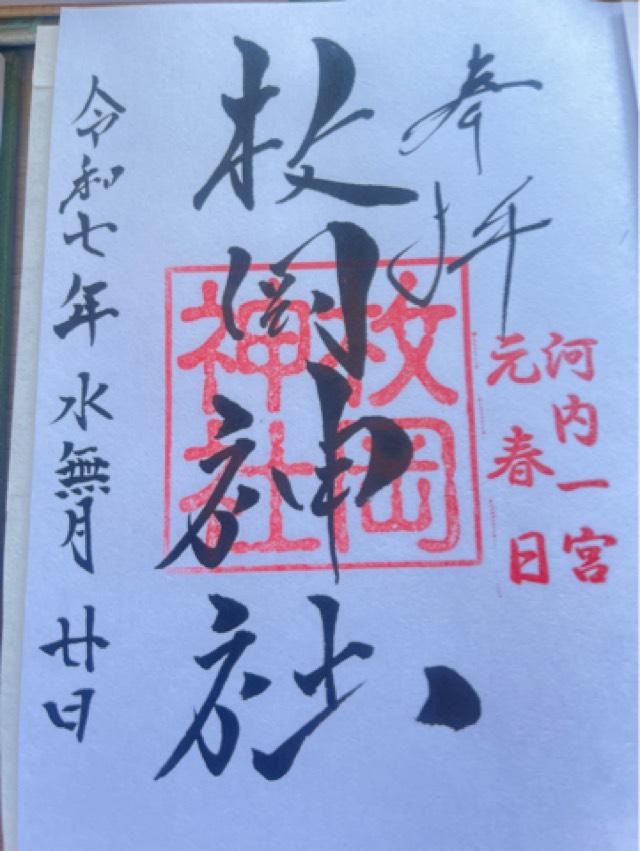 奉拝
河内一宮
元春日
枚岡神社
枚岡
神社
令和七年水無月廿日